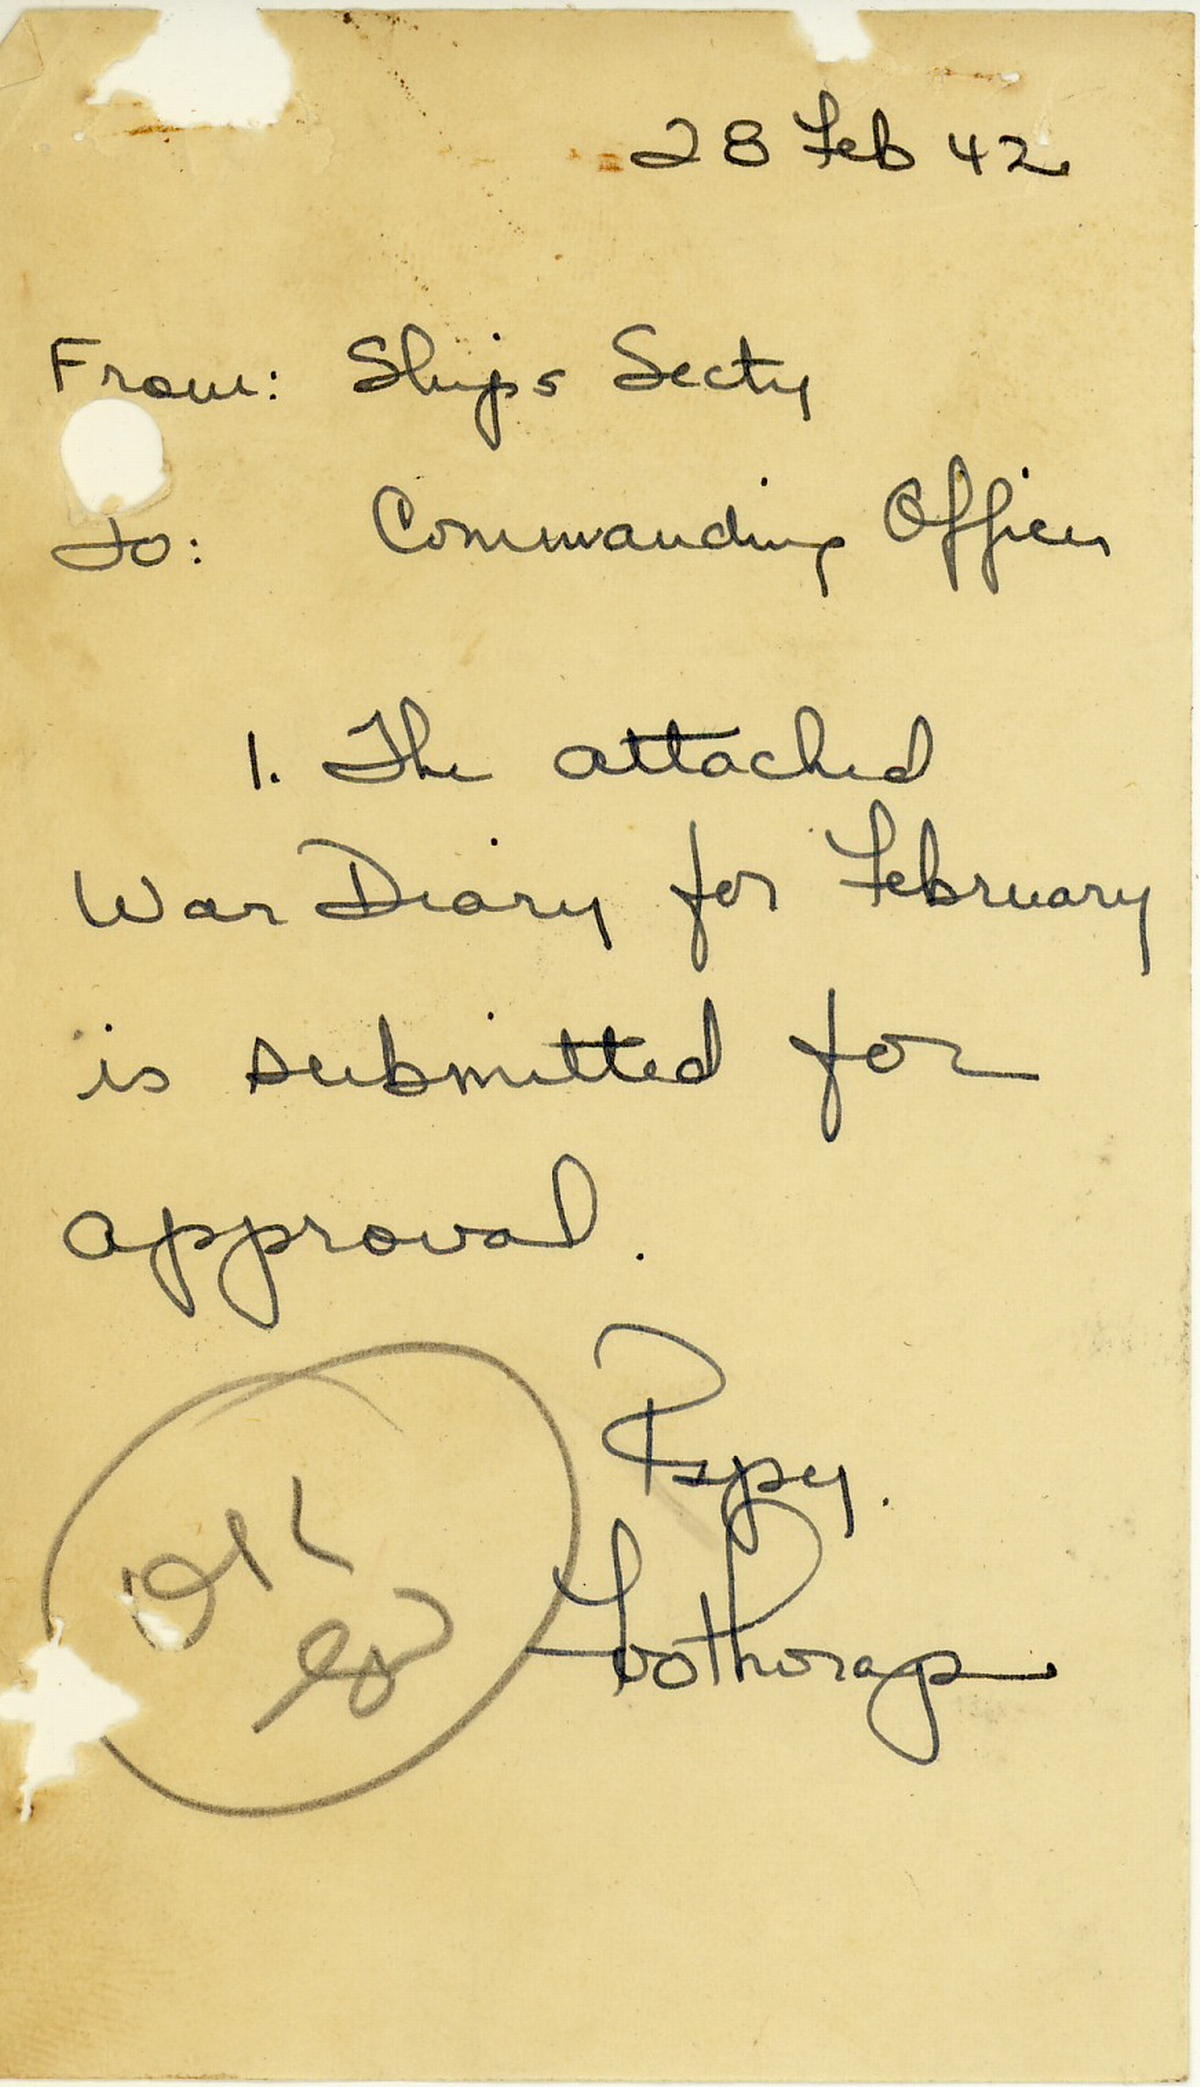 28 Feb 42
From: Ships Secty
To: Commanding Officer
1. The attached
War Diary for February
is submitted for
approval.
Rspy.